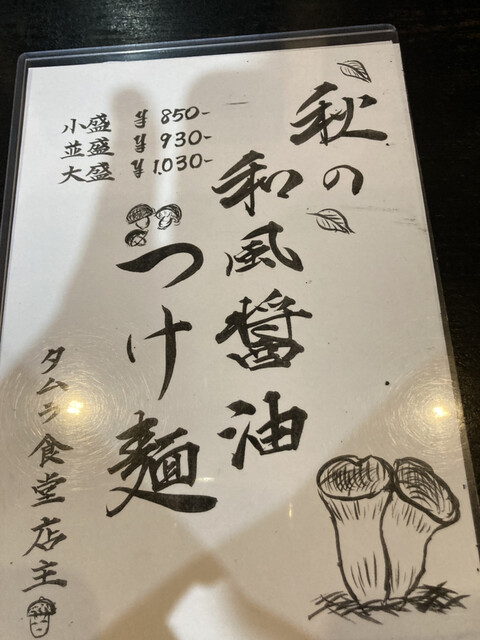 秋の
和風醤油
つけ麺
小盛 ¥850-
並盛 ¥930-
大盛 ¥1,030-
タムラ食堂店主